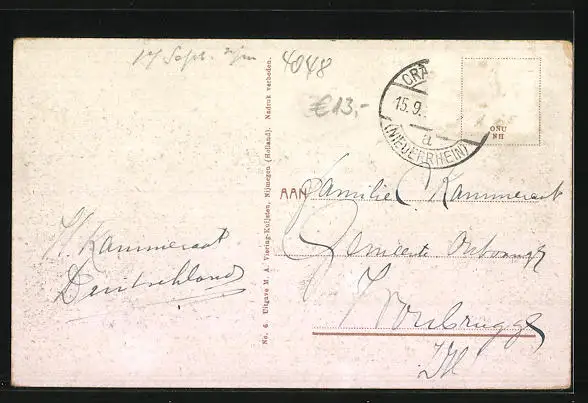 14 Sept.
4048
€13,-
CRA
15.9.
a
(NIEDERRHEIN)
ONU
NH
No. 6. Uitgave M. A. Viering-Kuijsten, Nijmegen (Holland). Nadruk verboden.
AAN Familie Kammeraat
Gemeente
Woubrugge
ZH
Kammeraat
Deutschland